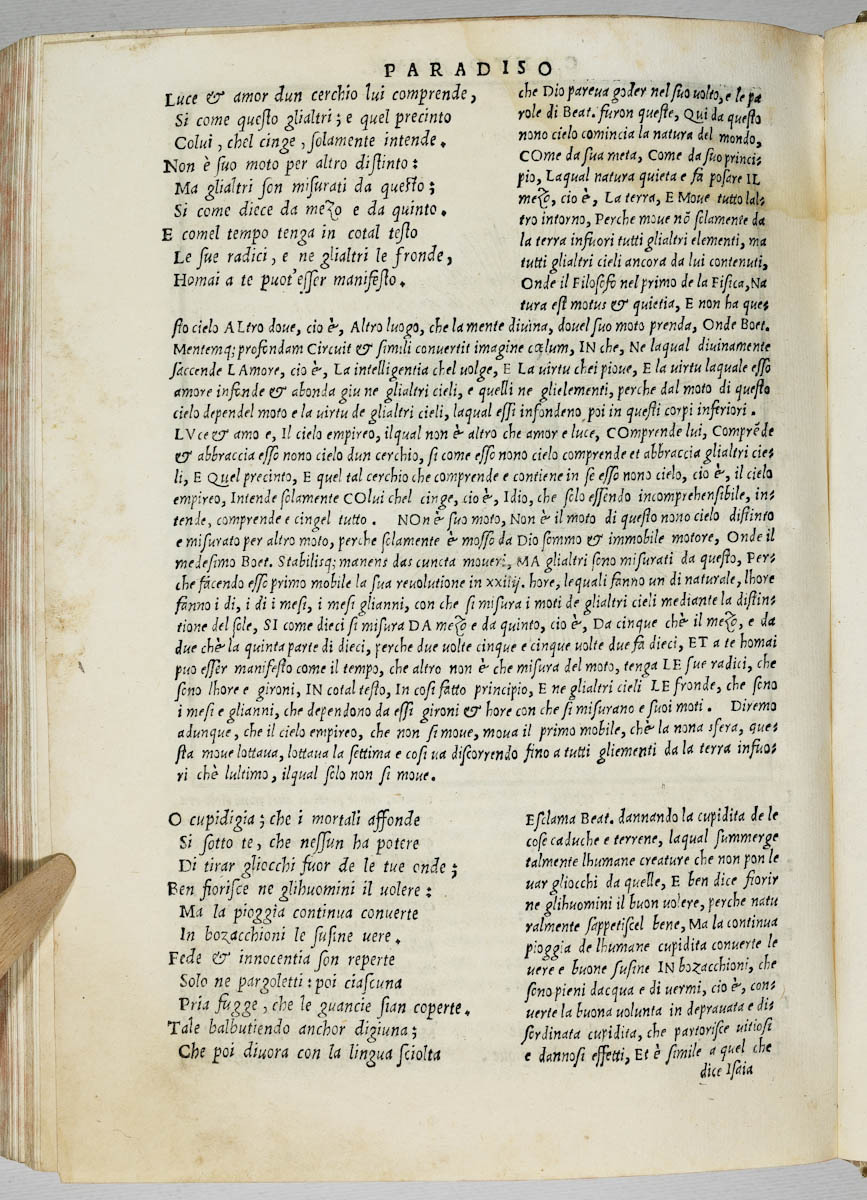 PARADISO
Luce & amor dun cerchio lui comprende,
Si come questo glialtri; e quel precinto
Colui, chel cinge, solamente intende.
Non è suo moto per altro distinto:
Ma glialtri son misurati da questo;
Si come diece da mezo e da quinto.
E comel tempo tenga in cotal testo
Le sue radici, e ne glialtri le fronde,
Homai a te puot'esser manifesto.
che Dio pareva goder nel suo volto, e le pa
role di Beat. furon queste, Qui da questo
nono cielo comincia la natura del mondo,
COme da sua meta, Come da suo princi-
pio, Laqual natura quieta e fà posare IL
mezo, cio è, La terra, E Move tutto lal-
tro intorno, Perche move nō solamente da
la terra infuori tutti glialtri elementi, ma
tutti glialtri cieli ancora da lui contenuti,
Onde il Filosofo nel primo de la Fisica, Na
tura est motus & quietia, E non ha que-
sto cielo ALtro dove, cio è, Altro luogo, che la mente divina, dovel suo moto prenda, Onde Boet.
Mentemq; profondam Circuit & simili convertit imagine cœlum, IN che, Ne laqual divinamente
saccende LAmore, cio è, La intelligentia chel volge, E La virtu chei piove, E la virtu laquale esso
amore infonde & abonda giu ne glialtri cieli, e quelli ne glielementi, perche dal moto di questo
cielo dependel moto e la virtu de glialtri cieli, laqual essi infondeno poi in questi corpi inferiori.
LVce & amo e, Il cielo empireo, ilqual non è altro che amor e luce, COmprende lui, Comprēde
& abbraccia esso nono cielo dun cerchio, si come esso nono cielo comprende et abbraccia glialtri cie-
li, E Quel precinto, E quel tal cerchio che comprende e contiene in se esso nono cielo, cio è, il cielo
empireo, Intende solamente COlui chel cinge, cio è, Idio, che solo essendo incomprehensibile, in-
tende, comprende e cingel tutto. NOn è suo moto, Non è il moto di questo nono cielo distinto
e misurato per altro moto, perche solamente è mosso da Dio sommo & immobile motore, Onde il
medesimo Boet. Stabilisq; manens das cuncta moueri, MA glialtri sono misurati da questo, Per-
che facendo esso primo mobile la sua revolutione in xxiiij. hore, lequali fanno un di naturale, lhore
fanno i di, i di i mesi, i mesi glianni, con che si misura i moti de glialtri cieli mediante la distin-
tione del sole, SI come dieci si misura DA mezo e da quinto, cio è, Da cinque chè il mezo, e da
due chè la quinta parte di dieci, perche due volte cinque e cinque volte due fà dieci, ET a te homai
puo esser manifesto come il tempo, che altro non è che misura del moto, tenga LE sue radici, che
sono lhore e gironi, IN cotal testo, In cosi fatto principio, E ne glialtri cieli LE fronde, che sono
i mesi e glianni, che dependono da essi gironi & hore con che si misurano e suoi moti. Diremo
adunque, che il cielo empireo, che non si move, mova il primo mobile, chè la nona sfera, que-
sta move lottava, lottava la settima e cosi va discorrendo fino a tutti gliementi da la terra infuo-
ri chè lultimo, ilqual solo non si move.
O cupidigia; che i mortali affonde
Si sotto te, che nessun ha potere
Di tirar gliocchi fuor de le tue onde;
Ben fiorisce ne glihuomini il volere:
Ma la pioggia continua converte
In bozacchioni le susine vere.
Fede & innocentia son reperte
Solo ne pargoletti: poi ciascuna
Pria fugge, che le guancie sian coperte.
Tale balbutiendo anchor digiuna;
Che poi divora con la lingua sciolta
Esclama Beat. dannando la cupidita de le
cose caduche e terrene, laqual summerge
talmente lhumane creature che non pon le
var gliocchi da quelle, E ben dice fiorir
ne glihuomini il buon volere, perche natu
ralmente sappetiscel bene, Ma la continua
pioggia de lhumane cupidita converte le
vere e buone susine IN bozacchioni, che
sono pieni dacqua e di vermi, cio è, con-
verte la buona volunta in depravata e di-
sordinata cupidita, che partorisce vitiosi
e dannosi effetti, Et è simile a quel che
dice Isaia